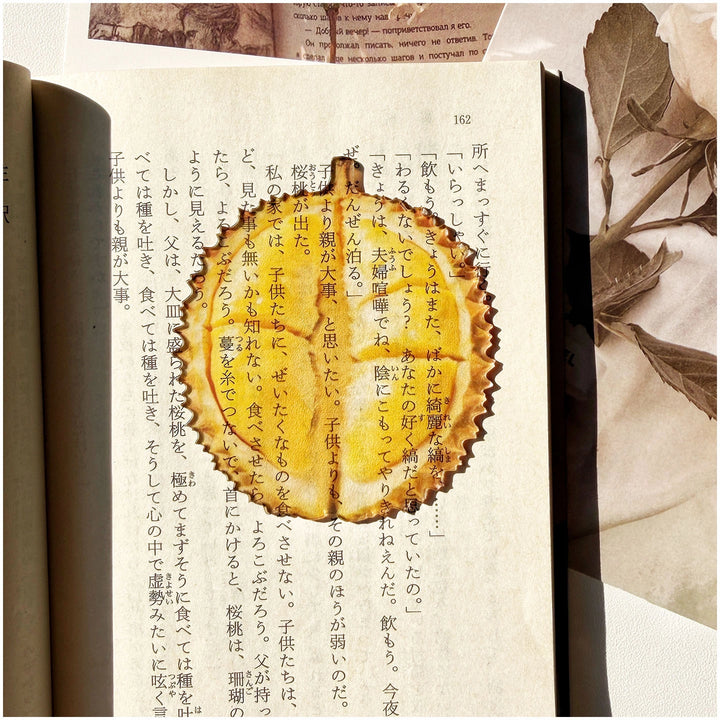 сколько шагов к нему
— Добрый вечер! — поприветствовал я его.
Он продолжал писать, ничего не ответив.
сделал еще несколько шагов и постучал
162
所へまっすぐに行
「いらっしゃい。」
「飲もう。きょうはまた、ばかに綺麗な縞を……」
「わるくないでしょう? あなたの好く縞だと思っていたの。」
「きょうは、夫婦喧嘩でね、陰にこもってやりきれねえんだ。飲もう。今夜
ぜ。だんぜん泊る。」
子供より親が大事、と思いたい。子供よりも、その親のほうが弱いのだ。
桜桃が出た。
私の家では、子供たちに、ぜいたくなものを食べさせない。子供たちは、
ど、見た事も無いかも知れない。食べさせたら、よろこぶだろう。父が持っ
たら、よろこぶだろう。蔓を糸でつないで、首にかけると、桜桃は、珊瑚の
ように見えるだろう。
しかし、父は、大皿に盛られた桜桃を、極めてまずそうに食べては種を吐
べては種を吐き、食べては種を吐き、そうして心の中で虚勢みたいに呟く言
子供よりも親が大事。